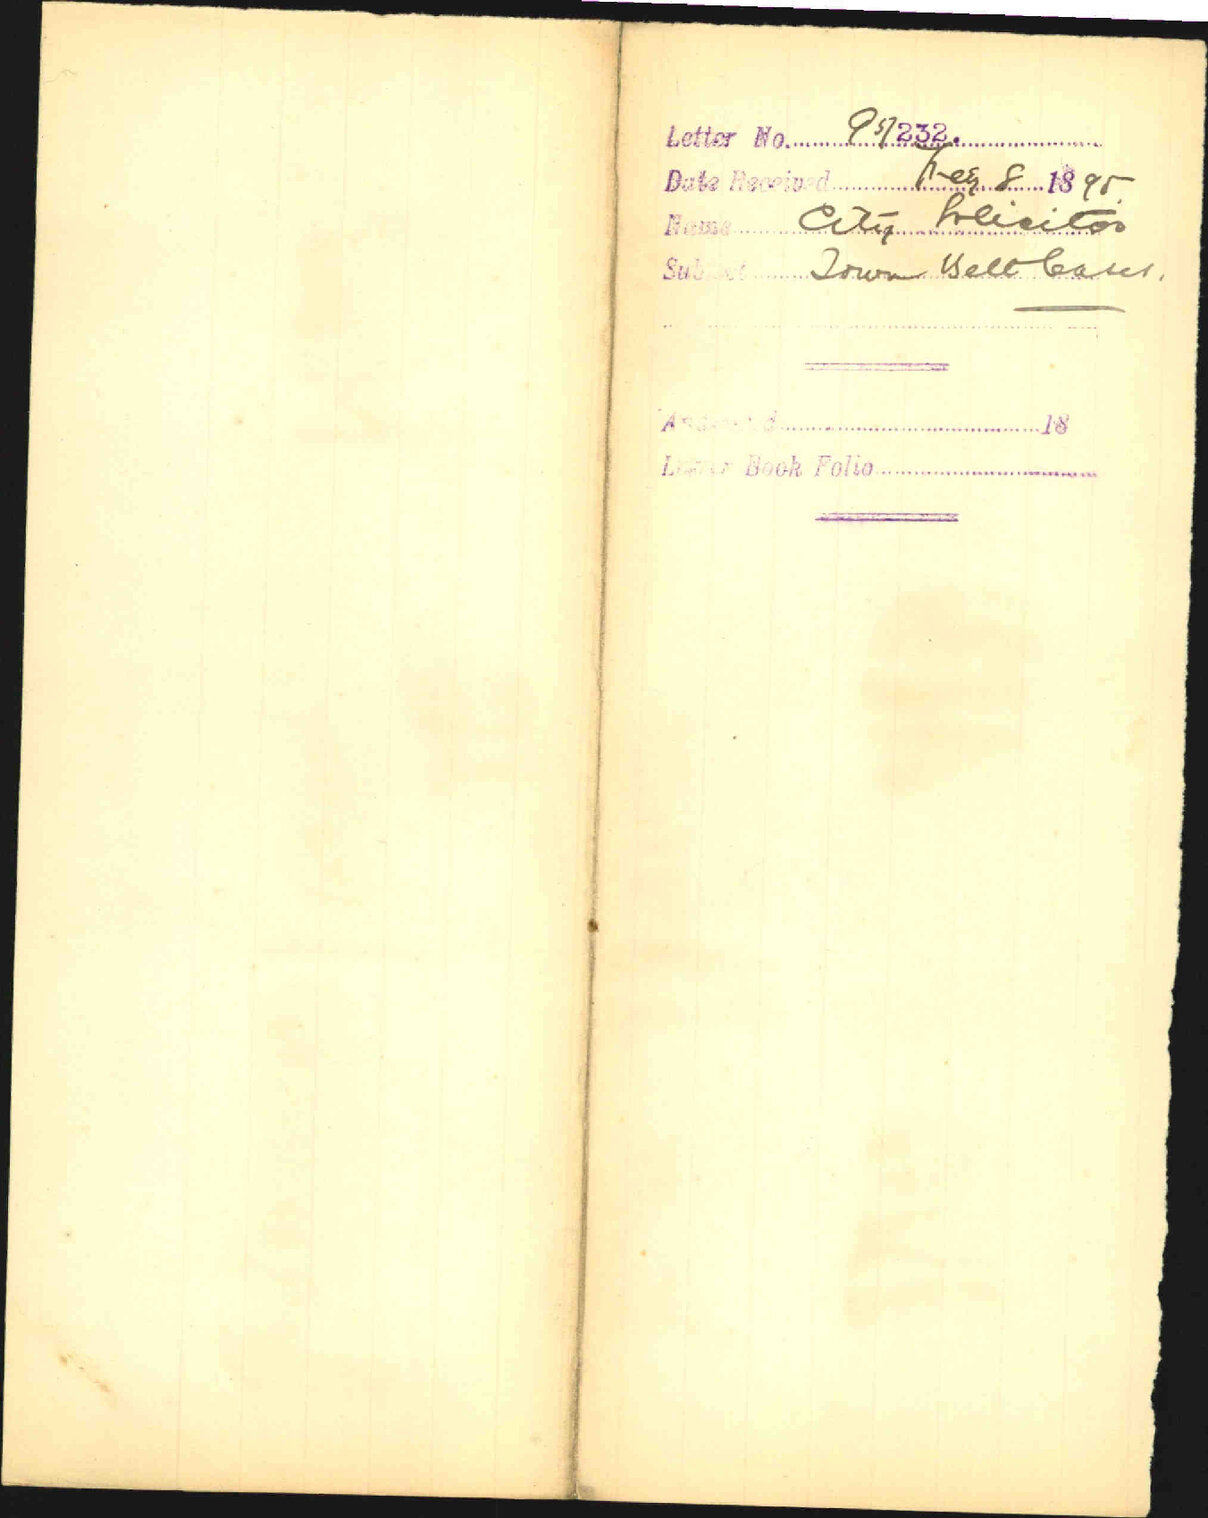 Letter No. 95/232.
Date Received Feby 8 1895.
Name City Solicitor
Subject Town Belt Leases.
Answered 18
Letter Book Folio